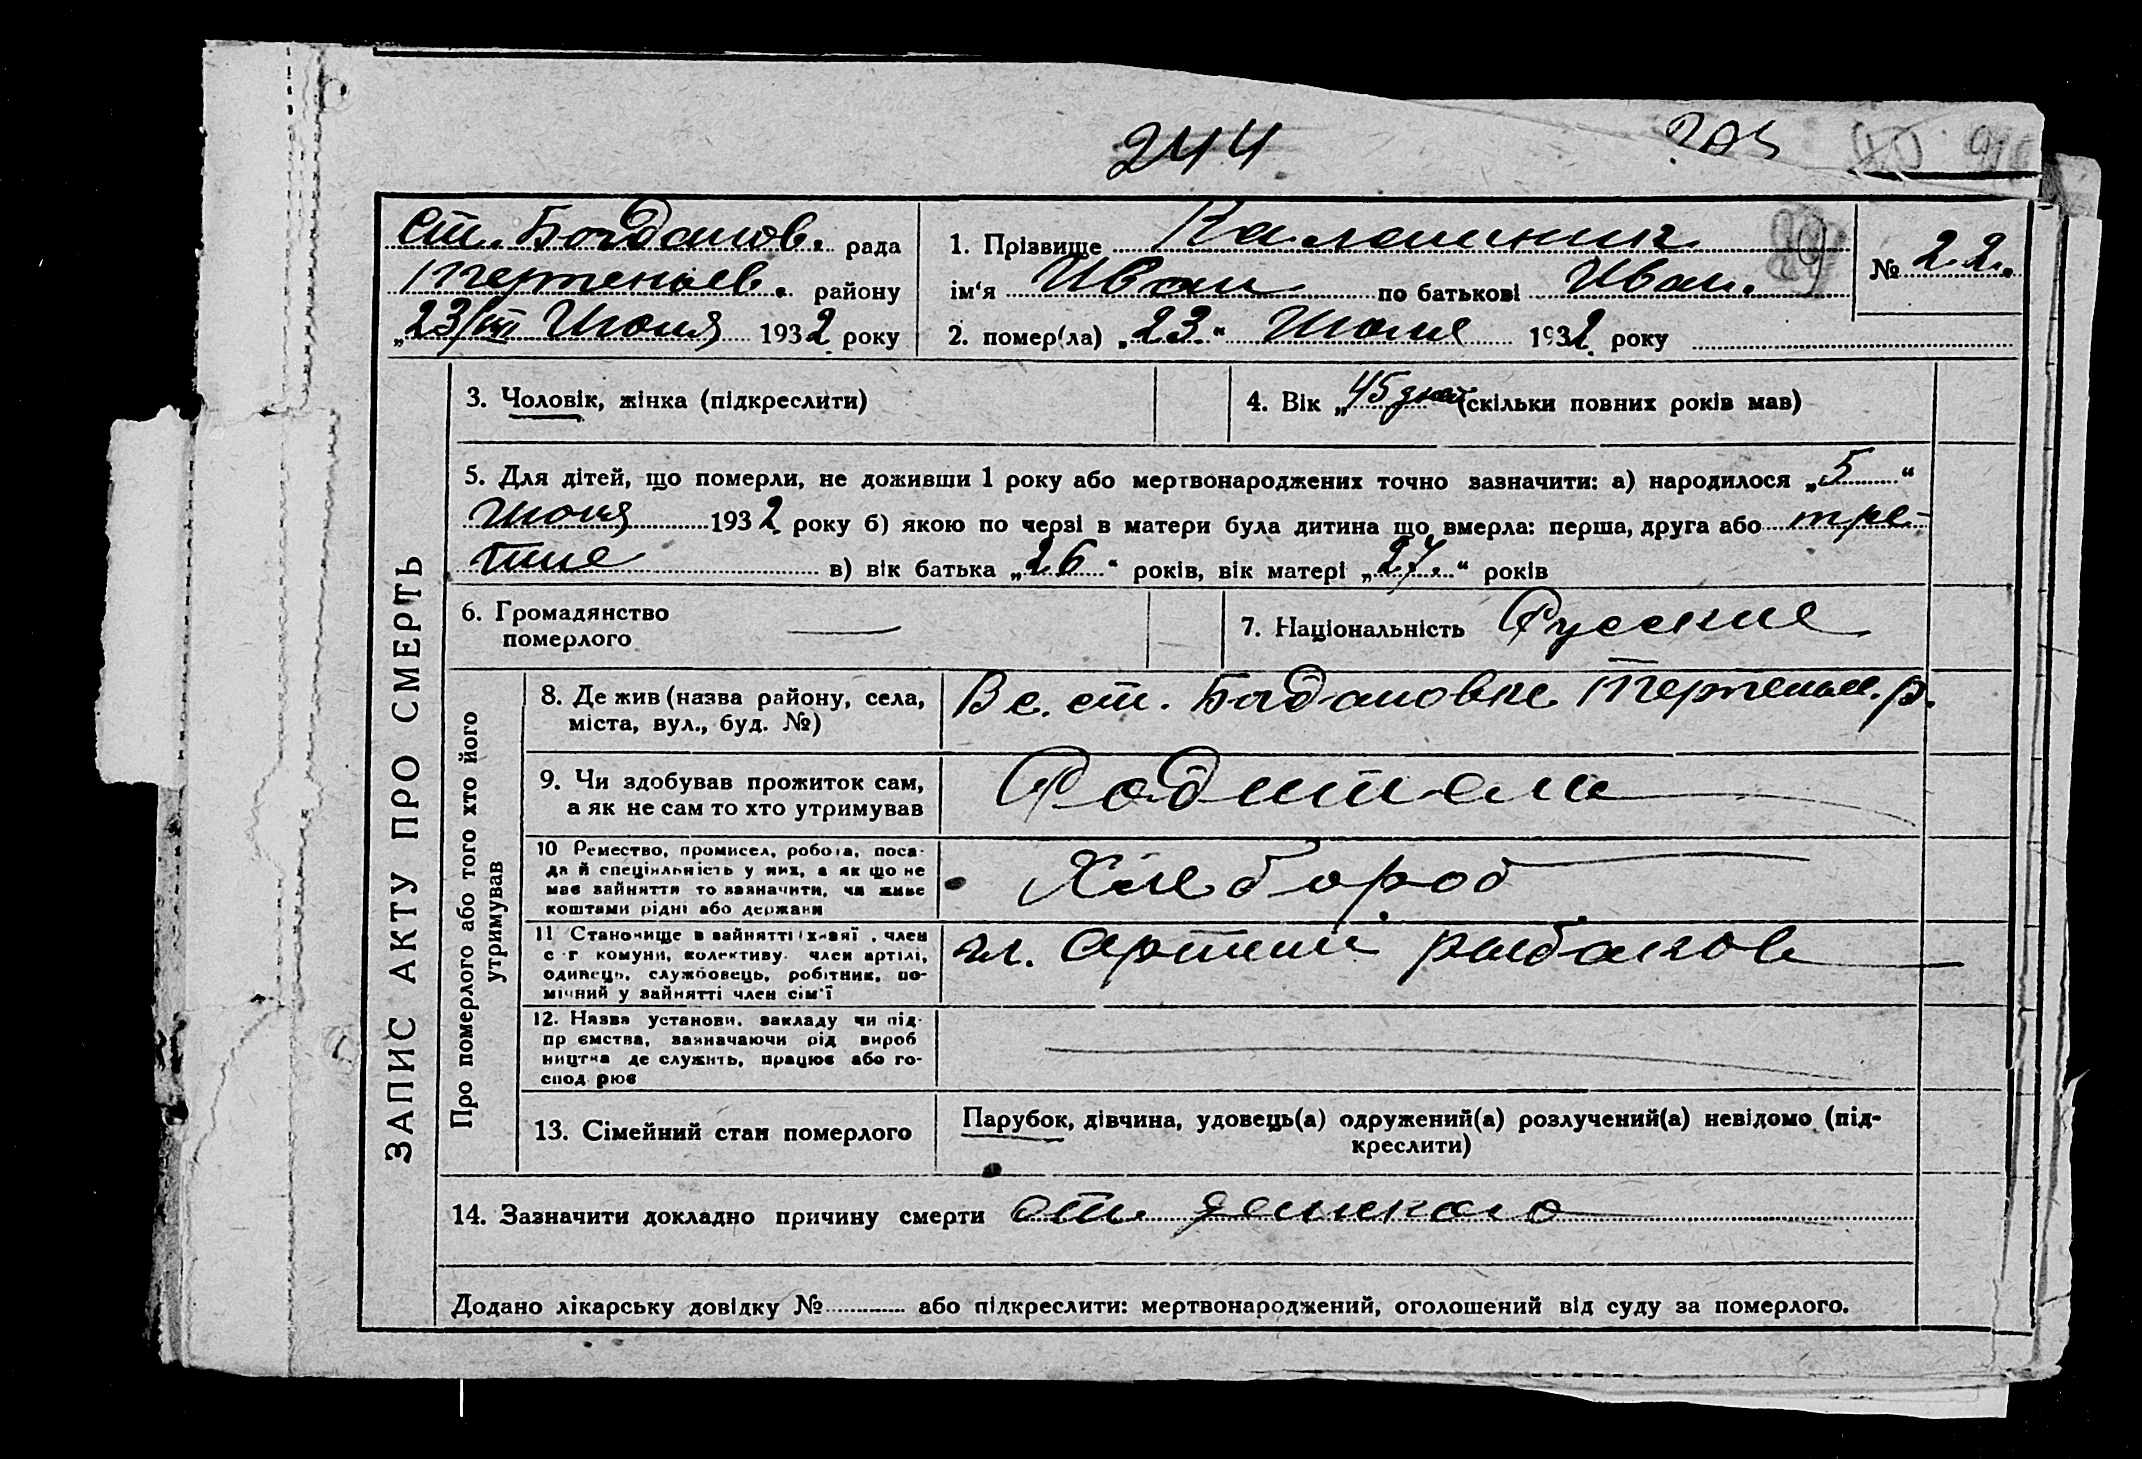 244
Ст. Богданов. рада
Терпеньев. району
„23/VII Июля 1932 року
1. Прізвище Калашник
ім‘я Иван по батькові Иван.
№ 22.
2. помер(ла) „23“ Июля 1932 року
ЗАПИС АКТУ ПРО СМЕРТЬ
3. Чоловік, жінка (підкреслити)
4. Вік „45 дней (скільки повних років мав)
5. Для дітей, що померли, не доживши 1 року або мертвонароджених точно зазначити: а) народилося „5“
Июня 1932 року б) якою по черзі в матери була дитина що вмерла: перша, друга або тре-
тие в) вік батька „26“ років, вік матері „27.“ років
6. Громадянство
померлого
7. Національність Русские
Про померлого або того хто його
утримував
8. Де жив (назва району, села,
міста, вул., буд. №)
В с. ст. Богдановке Терпеньев. р.
9. Чи здобував прожиток сам,
а як не сам то хто утримував
Родители
10 Ремество, промисел, робота, поса-
да й спеціяльність у них, а як що не
має зайняття то зазначити, чи живе
коштами рідні або держави
Хлебороб
11 Становище в зайнятті: хазяї, член
с-г комуни, колективу. член артілі,
одинець, службовець, робітник, по-
мічний у зайнятті член сім‘ї
чл. Артили рыбаков
12. Назва установи, закладу чи під-
пр ємства, зазначаючи рід вироб
ництва де служить, працює або го-
спод рює
13. Сімейний стан померлого
Парубок, дівчина, удовець(а) одружений(а) розлучений(а) невідомо (під-
креслити)
14. Зазначити докладно причину смерти от
Додано лікарську довідку № або підкреслити: мертвонароджений, оголошений від суду за померлого.